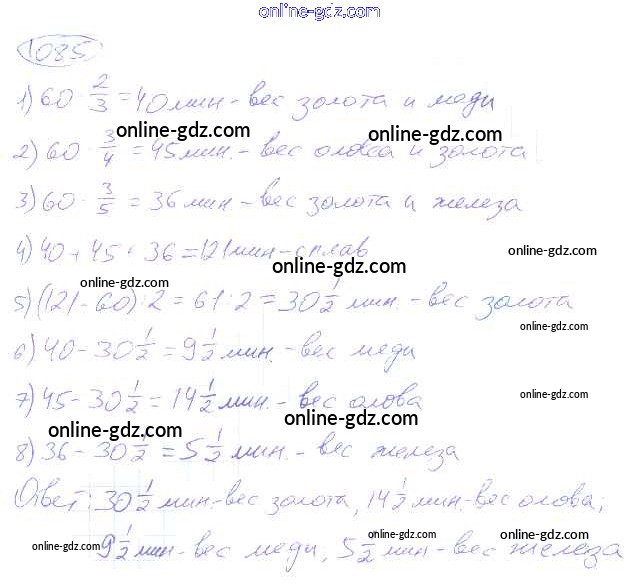 online-gdz.com
1085
1) 60 · 2/3 = 40 мин - вес золота и меди
online-gdz.com online-gdz.com
2) 60 · 3/4 = 45 мин. - вес олова и золота
3) 60 · 3/5 = 36 мин - вес золота и железа
4) 40 + 45 + 36 = 121 мин - сплав online-gdz.com
online-gdz.com online-gdz.com
5) (121 - 60) : 2 = 61 : 2 = 30 1/2 мин. - вес золота
online-gdz.com
6) 40 - 30 1/2 = 9 1/2 мин. - вес меди
7) 45 - 30 1/2 = 14 1/2 мин. - вес олова online-gdz.com
online-gdz.com
8) 36 - 30 1/2 = 5 1/2 мин. - вес железа
Ответ: 30 1/2 мин. - вес золота, 14 1/2 мин. - вес олова;
online-gdz.com online-gdz.com online-gdz.com
9 1/2 мин - вес меди, 5 1/2 мин - вес железа